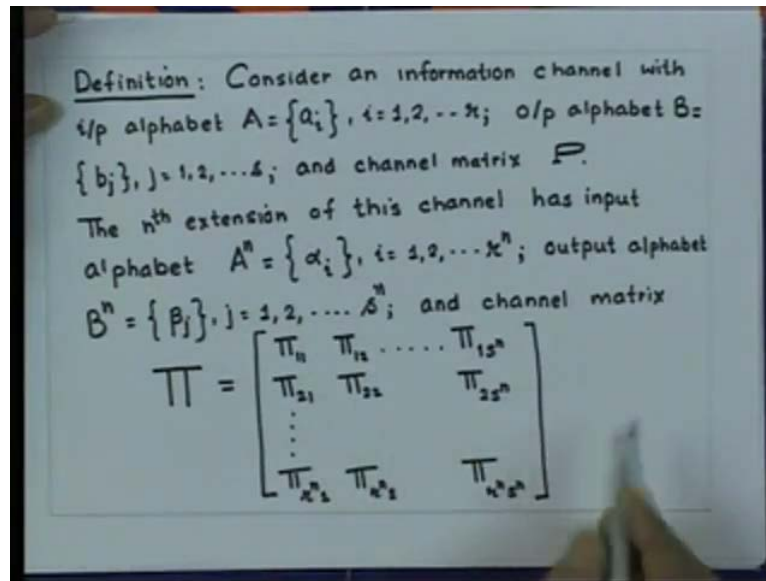 Definition: Consider an information channel with
i/p alphabet A = {aᵢ}, i = 1,2, -- r; o/p alphabet B =
{bⱼ}, j = 1, 2, ... s; and channel matrix P.
The nᵗʰ extension of this channel has input
alphabet Aⁿ = {αᵢ}, i = 1,2, ... rⁿ; output alphabet
Bⁿ = {βⱼ}, j = 1, 2, .... sⁿ; and channel matrix
Π = [ Π₁₁ Π₁₂ ..... Π₁sⁿ
Π₂₁ Π₂₂ Π₂sⁿ
⋮
Πrⁿ₁ Πrⁿ₂ Πrⁿsⁿ ]